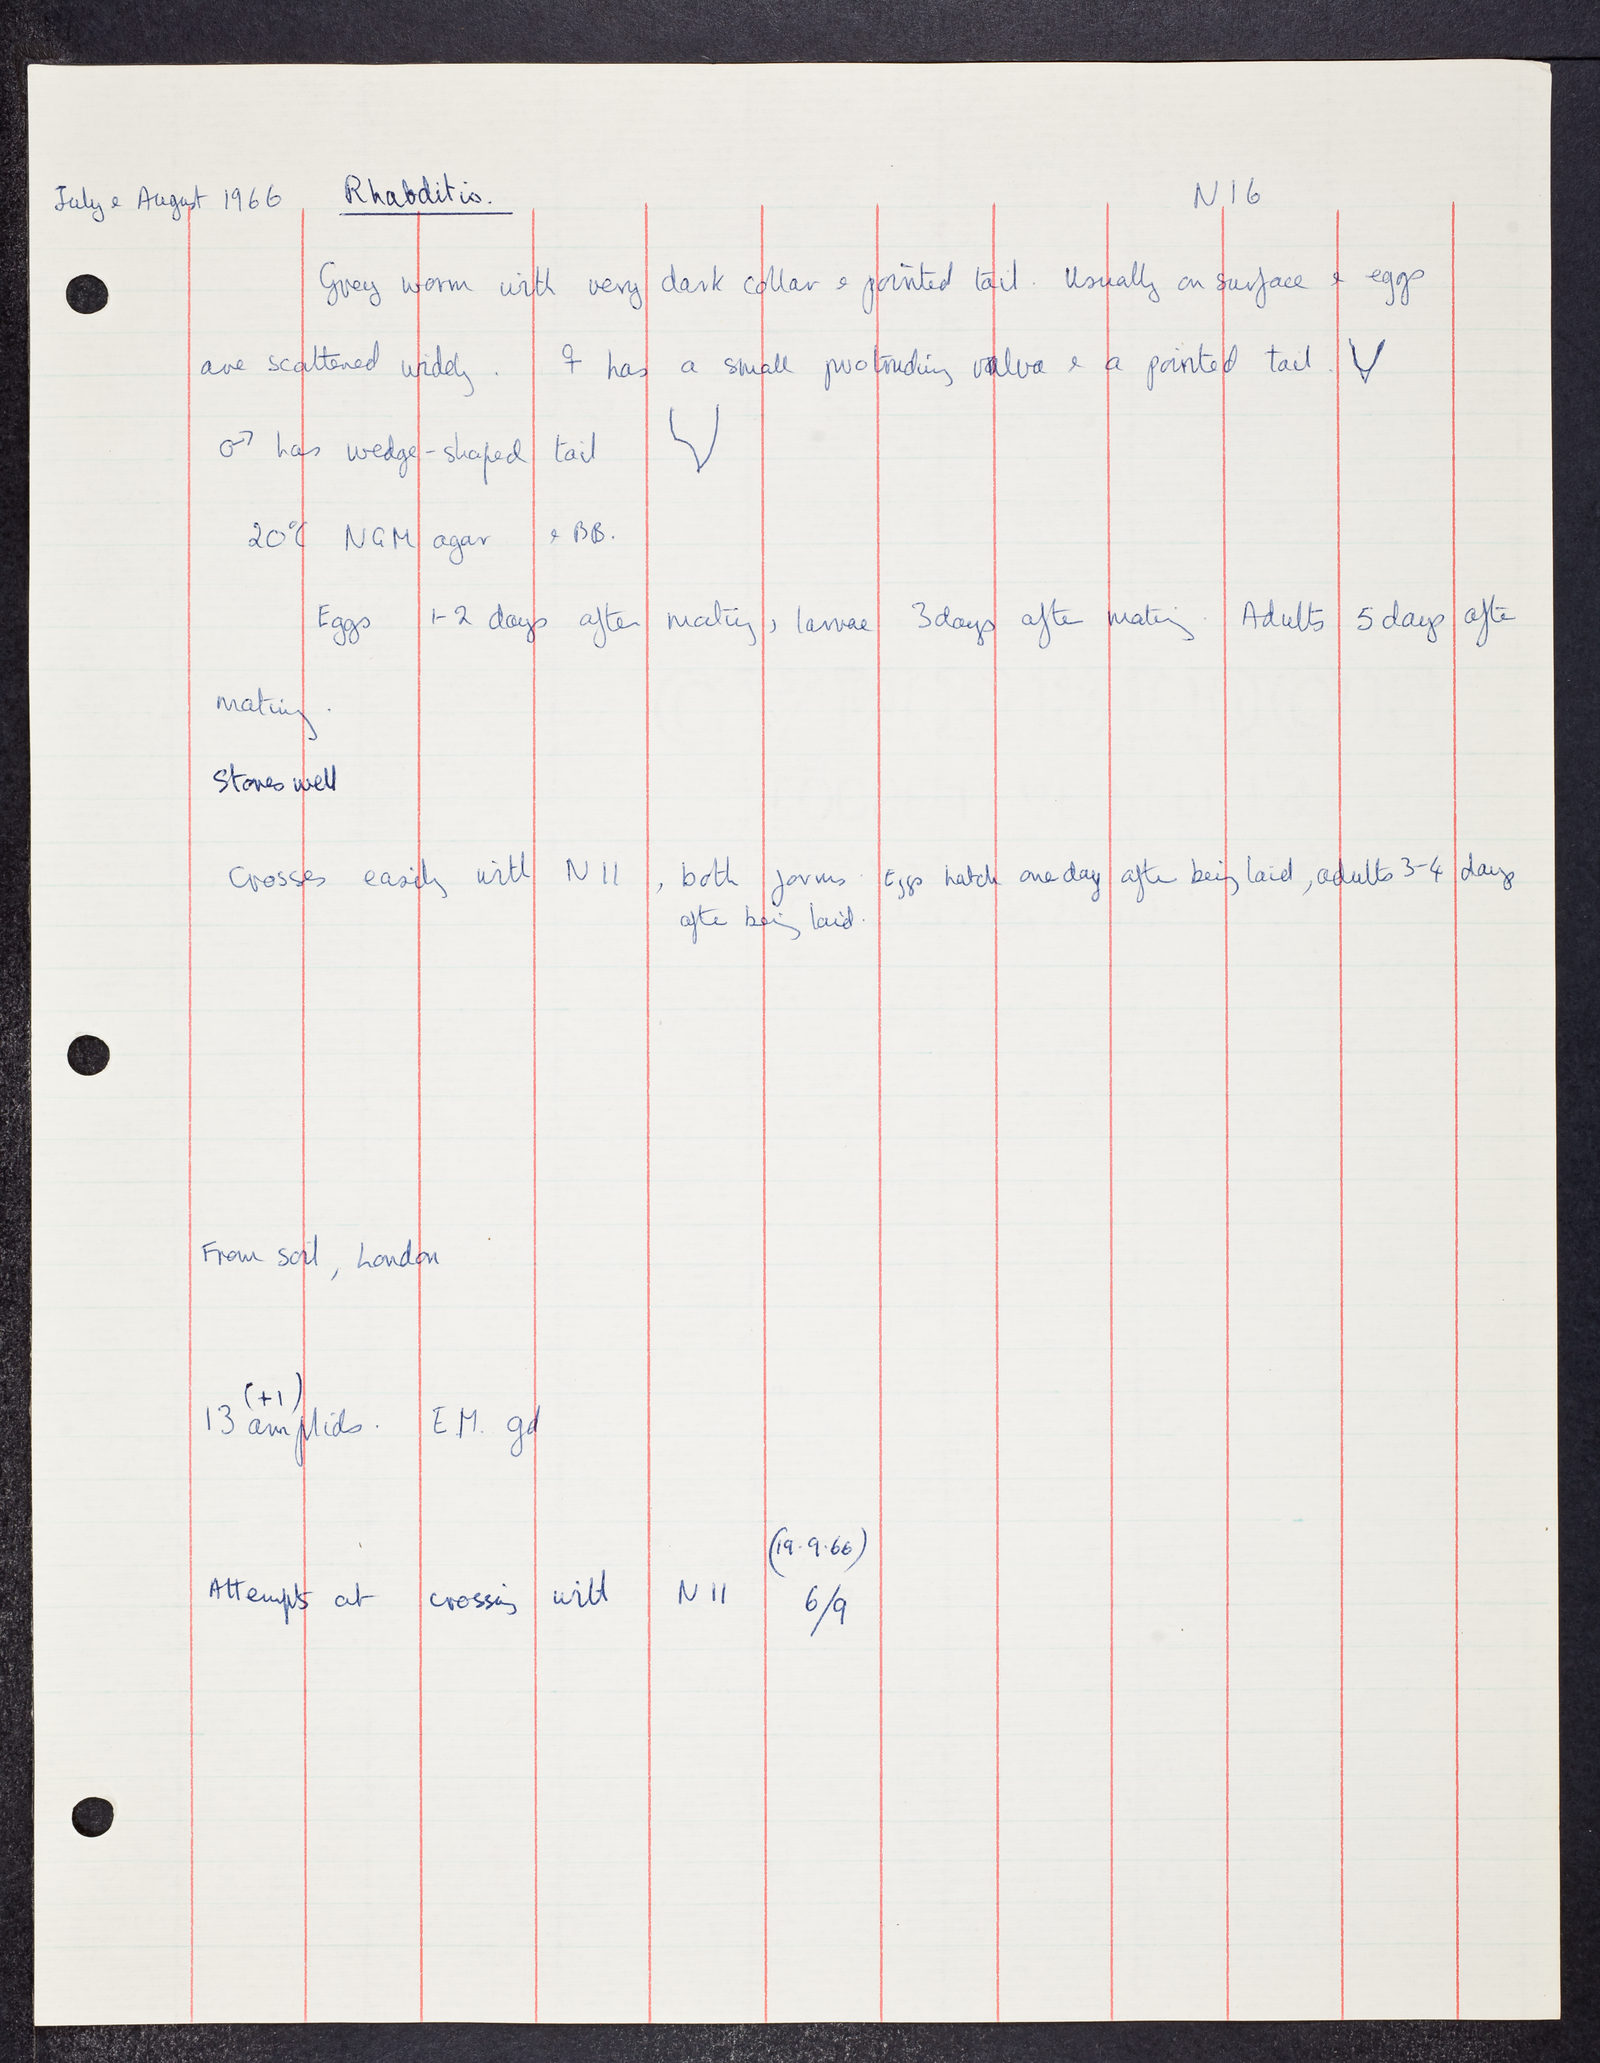 July & August 1966 Rhabditis. N16
Grey worm with very dark collar & pointed tail. Usually on surface & eggs
are scattered widely. ♀ has a small protruding vulva & a pointed tail.
♂ has wedge-shaped tail
20°C NGM agar & BB.
Eggs 1-2 days after mating, larvae 3 days after mating. Adults 5 days after
mating.
Stores well
Crosses easily with N11, both forms. Eggs hatch one day after being laid, adults 3-4 days
after being laid.
From soil, London
(+1)
13 amplids. E.M. gd
(19.9.66)
Attempts at crossing with N11 6/9